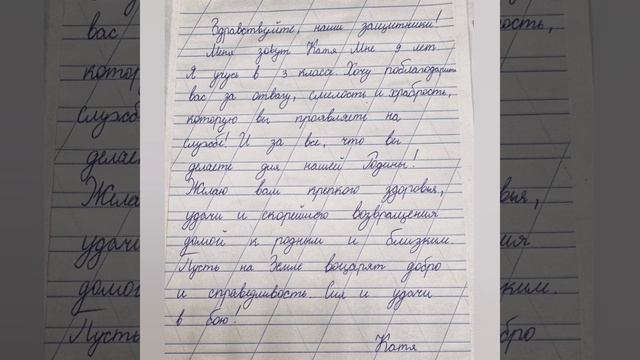 Здравствуйте, наши защитники!
Меня зовут Катя Мне 9 лет.
Я учусь в 3 классе. Хочу поблагодарить
вас за отвагу, смелость и храбрость,
которую вы проявляете на
службе! И за все, что вы
делаете для нашей Родины!
Желаю вам крепкого здоровья,
удачи и скорейшего возвращения
домой к родным и близким.
Пусть на Земле воцарят добро
и справедливость. Сил и удачи
в бою!
Катя